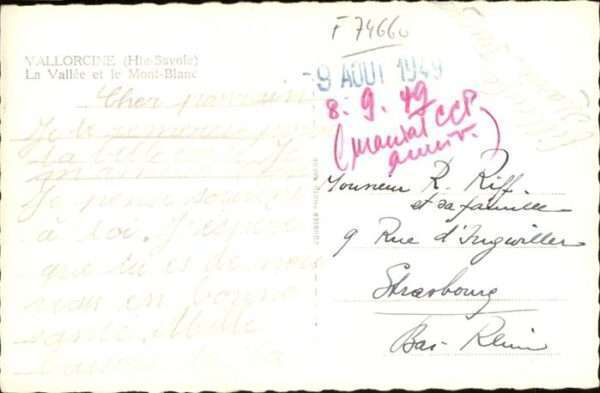 F 74660
VALLORCINE (Hte-Savoie)
La Vallée et le Mont-Blanc
-9 AOUT 1949
8. 9. 49
(mandat CCP
anniv.)
Cher parrain
Je te remercie pour
ta belle
Je pense souvent
à toi. J'espère
que tu es de nou
veau en bonne
santé. Mille
Monsieur R. Riff.
et sa famille
9 Rue d'Ingwiller
Strasbourg
Bas-Rhin